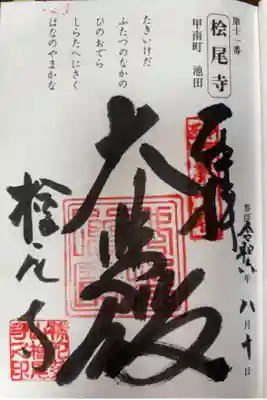 第十一番
桧尾寺
甲南町 池田
たきいけだ
ふたつのなかの
ひのおでら
しらたへにさく
はなのやまかな
奉拝
大悲殿
桧尾寺
参拝 令和 年
八月十日